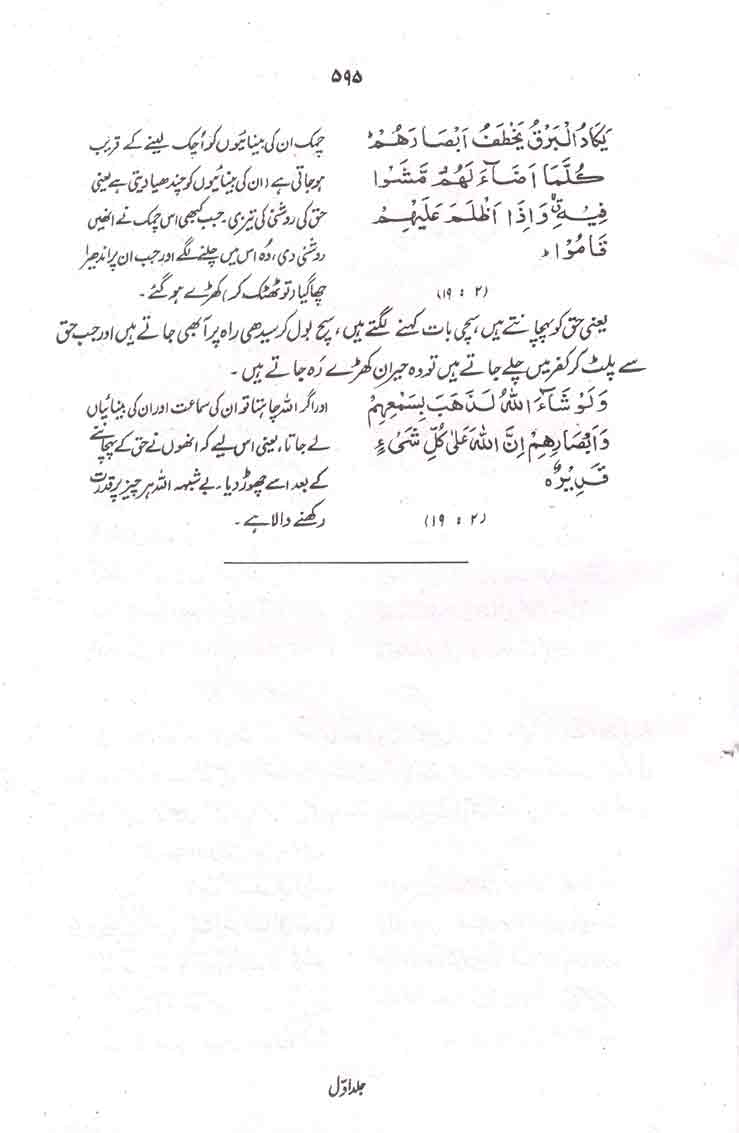 ۵۹۵
یَكَادُ الْبَرْقُ یَخْطَفُ اَبْصَارَهُمْ ؕ
كُلَّمَاۤ اَضَآءَ لَهُمْ مَّشَوْا
فِیْهِ ۙۗ وَ اِذَاۤ اَظْلَمَ عَلَیْهِمْ
قَامُوْا ؕ
(۲ : ۱۹)
چمک ان کی بینائیوں کو اُچک لینے کے قریب
ہو جاتی ہے (ان کی بینائیوں کو چندھیا دیتی ہے یعنی
حق کی روشنی کی تیزی۔ جب کبھی اس چمک نے انھیں
روشنی دی، وہ اس میں چلنے لگے اور جب ان پر اندھیرا
چھا گیا (تو ٹھٹک کر) کھڑے ہو گئے۔
یعنی حق کو پہچانتے ہیں، سچی بات کہنے لگتے ہیں، سچ بول کر سیدھی راہ پر آ بھی جاتے ہیں اور جب حق
سے پلٹ کر کفر میں چلے جاتے ہیں تو وہ حیران کھڑے رہ جاتے ہیں۔
وَ لَوْ شَآءَ اللّٰهُ لَذَهَبَ بِسَمْعِهِمْ
وَ اَبْصَارِهِمْ اِنَّ اللّٰهَ عَلٰى كُلِّ شَیْءٍ
قَدِیْرٌ۠
(۲ : ۱۹)
اور اگر اللہ چاہتا تو ان کی سماعت اور ان کی بینائیاں
لے جاتا، یعنی اس لیے کہ انھوں نے حق کے پہچاننے
کے بعد اسے چھوڑ دیا۔ بے شبہہ اللہ ہر چیز پر قدرت
رکھنے والا ہے۔
جلد اوّل